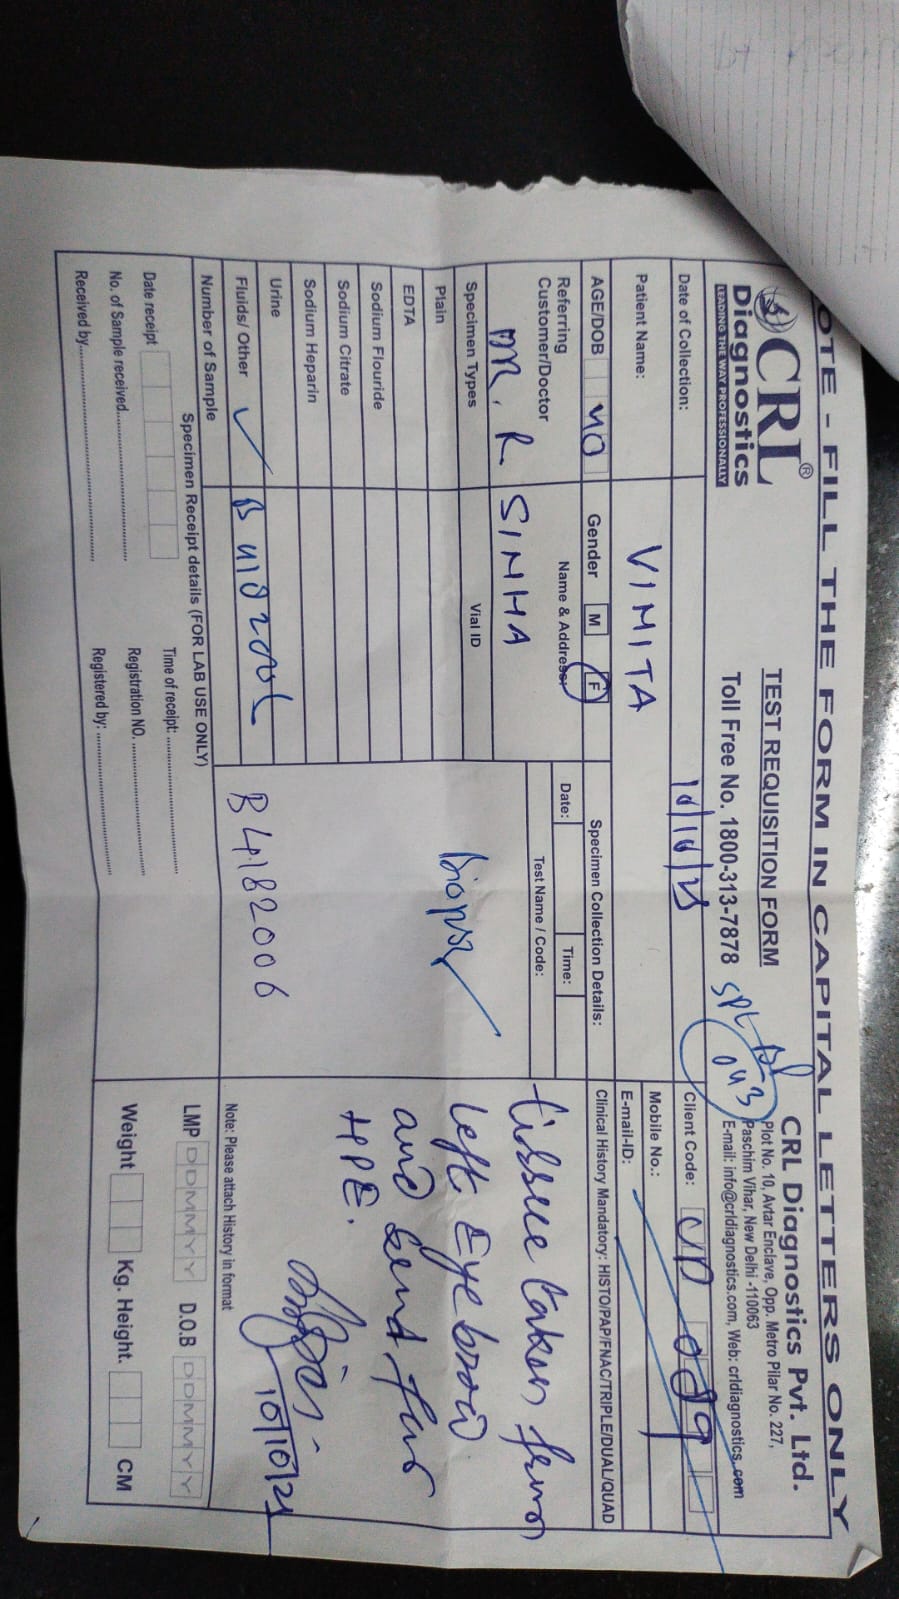 NOTE - FILL THE FORM IN CAPITAL LETTERS ONLY
CRL®
Diagnostics
LEADING THE WAY PROFESSIONALLY
TEST REQUISITION FORM
Toll Free No. 1800-313-7878
SPL
043
CRL Diagnostics Pvt. Ltd.
Plot No. 10, Avtar Enclave, Opp. Metro Pilar No. 227,
Paschim Vihar, New Delhi -110063
E-mail: info@crldiagnostics.com, Web: crldiagnostics.com
Date of Collection: 10/10/25
Client Code: UP 089
Patient Name: VIMITA
Mobile No.:
E-mail-ID:
AGE/DOB 40 Gender M F
Specimen Collection Details:
Clinical History Mandatory: HISTO/PAP/FNAC/TRIPLE/DUAL/QUAD
Referring
Customer/Doctor
Name & Address:
DR. R SINHA
Date: Time:
Test Name / Code:
Specimen Types Vial ID
Plain
EDTA
Sodium Flouride
Sodium Citrate
Sodium Heparin
Urine
Fluids/ Other ✓
Number of Sample
biopsy
B4182006
Tissue taken from
left Eye brow
and send for
HPE.
10/10/25
Note: Please attach History in format
Specimen Receipt details (FOR LAB USE ONLY)
Date receipt
Time of receipt:
No. of Sample received
Registration NO.
Received by
Registered by:
LMP DDMMYY D.O.B DDMMYY
Weight Kg. Height. CM